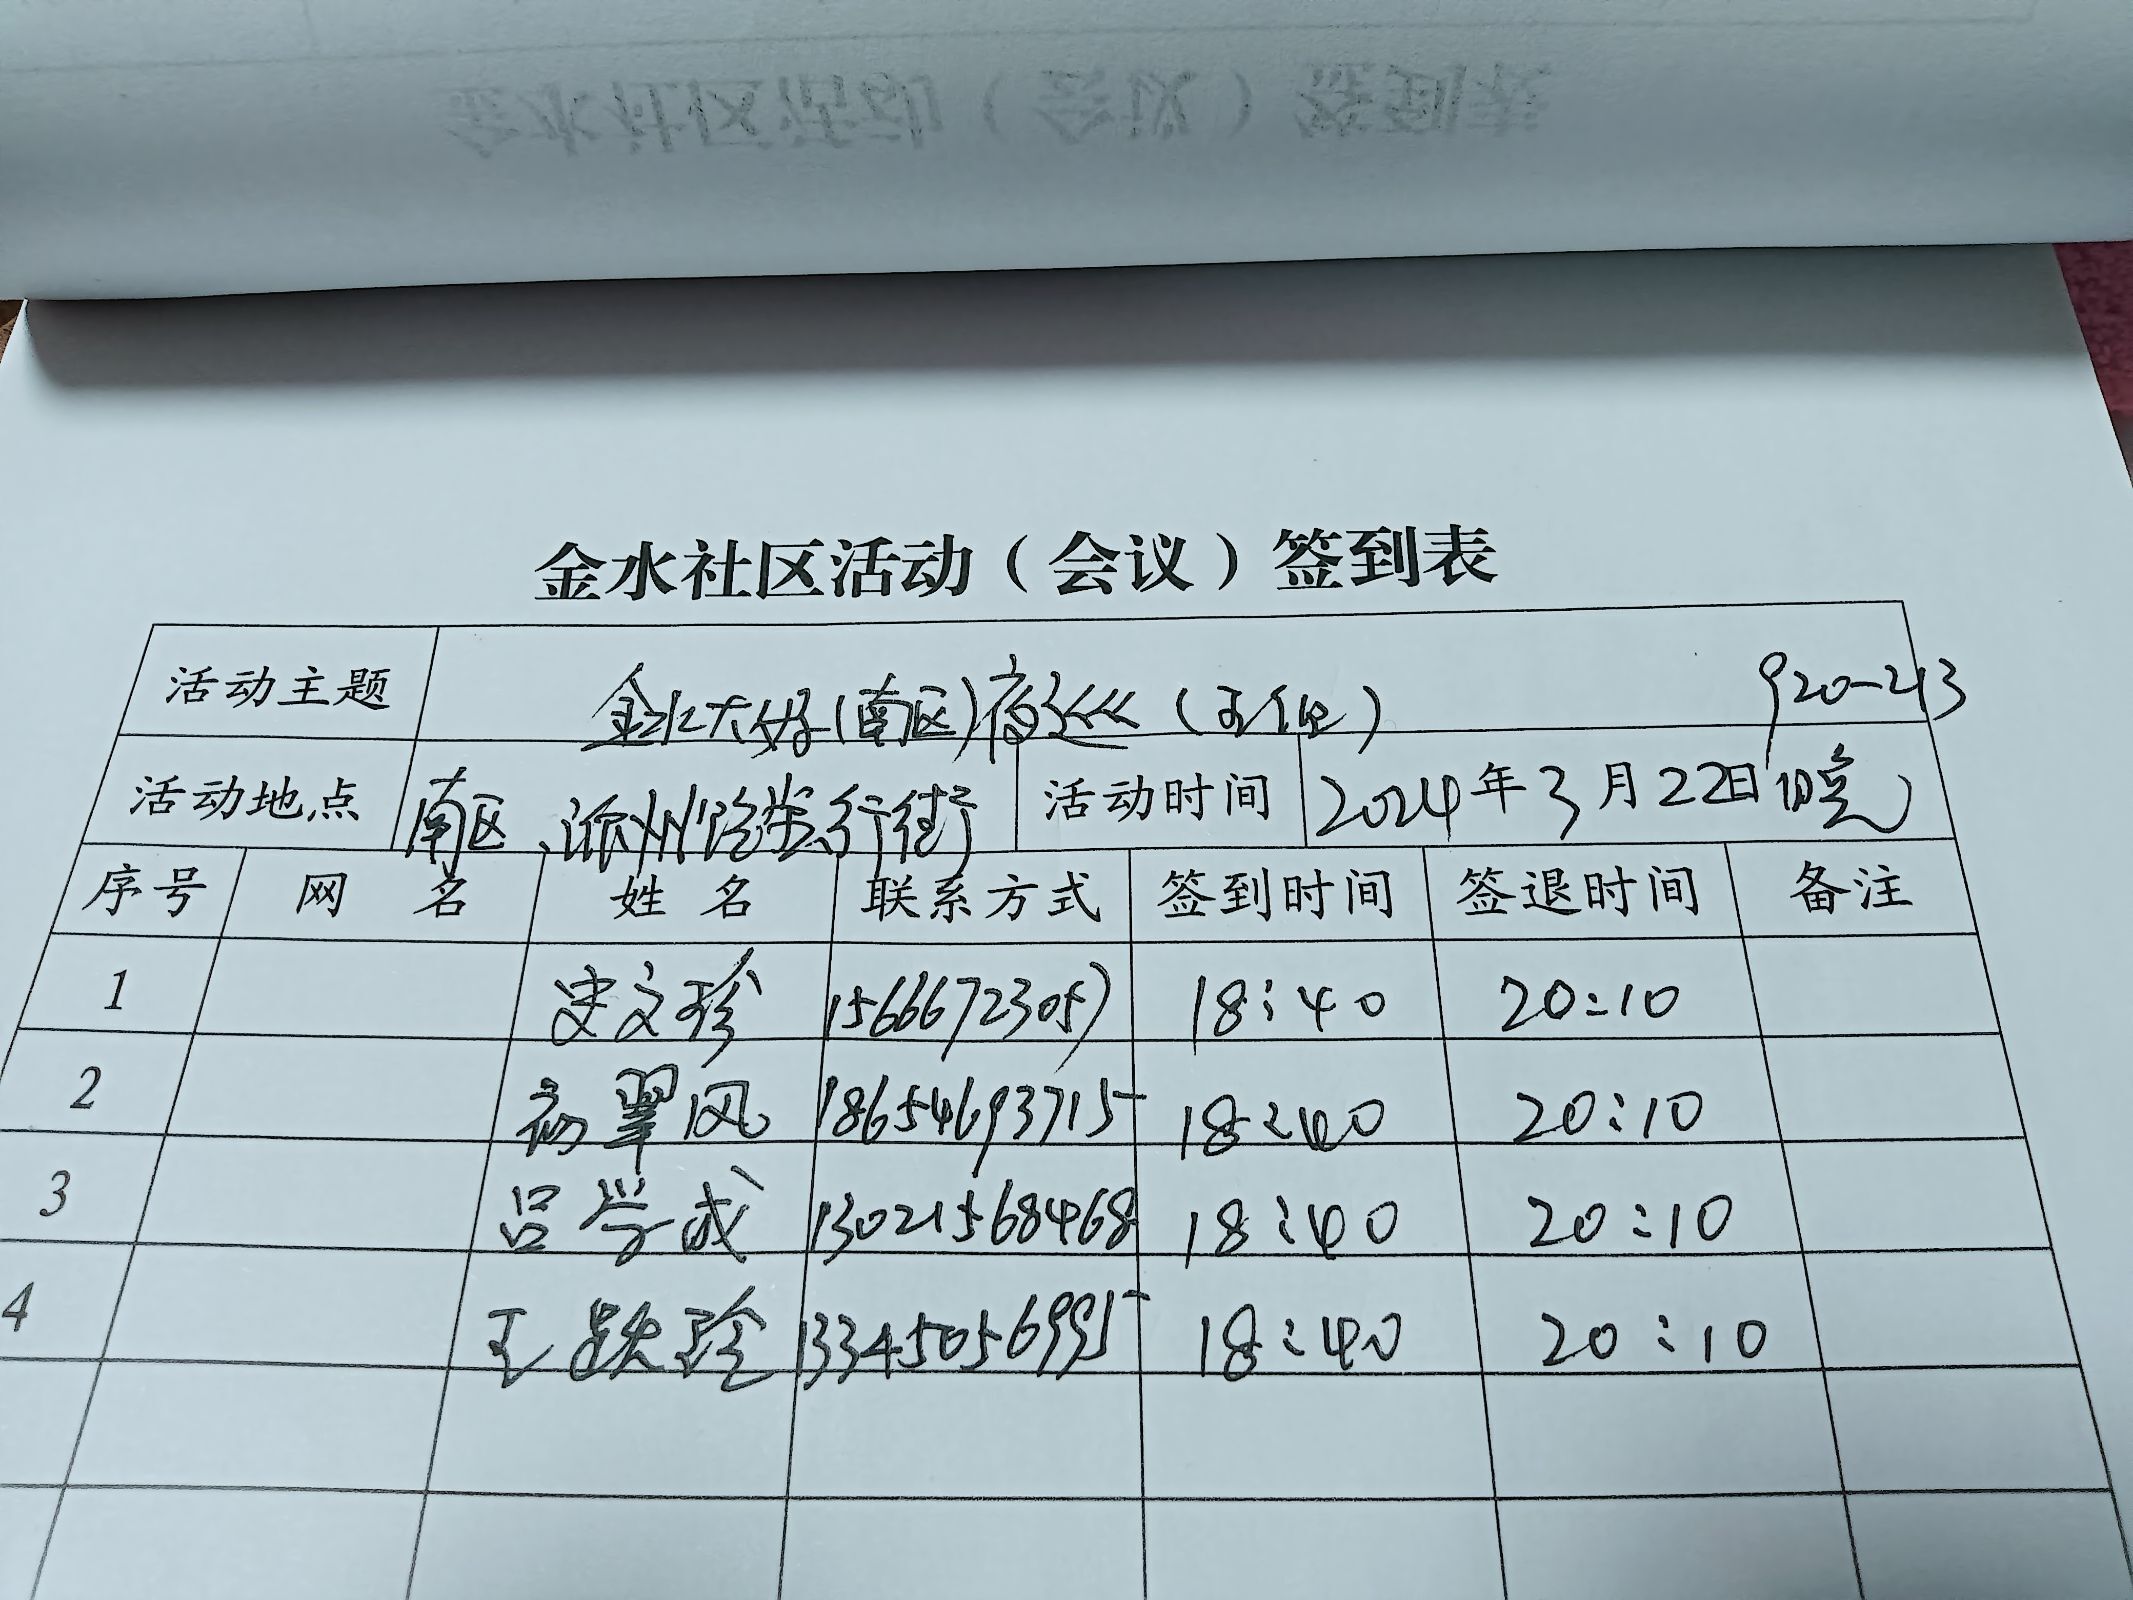 金水社区活动（会议）签到表
活动主题 金水大好(南区)夜巡 920-213
活动地点 南区、渝州路步行街 活动时间 2024年3月22日晚
序号 网名 姓名 联系方式 签到时间 签退时间 备注
1 史文珍 15666723057 18:40 20:10
2 初翠风 18654693715 18:40 20:10
3 吕学成 13021568468 18:40 20:10
4 王跃玲 13345056995 18:40 20:10